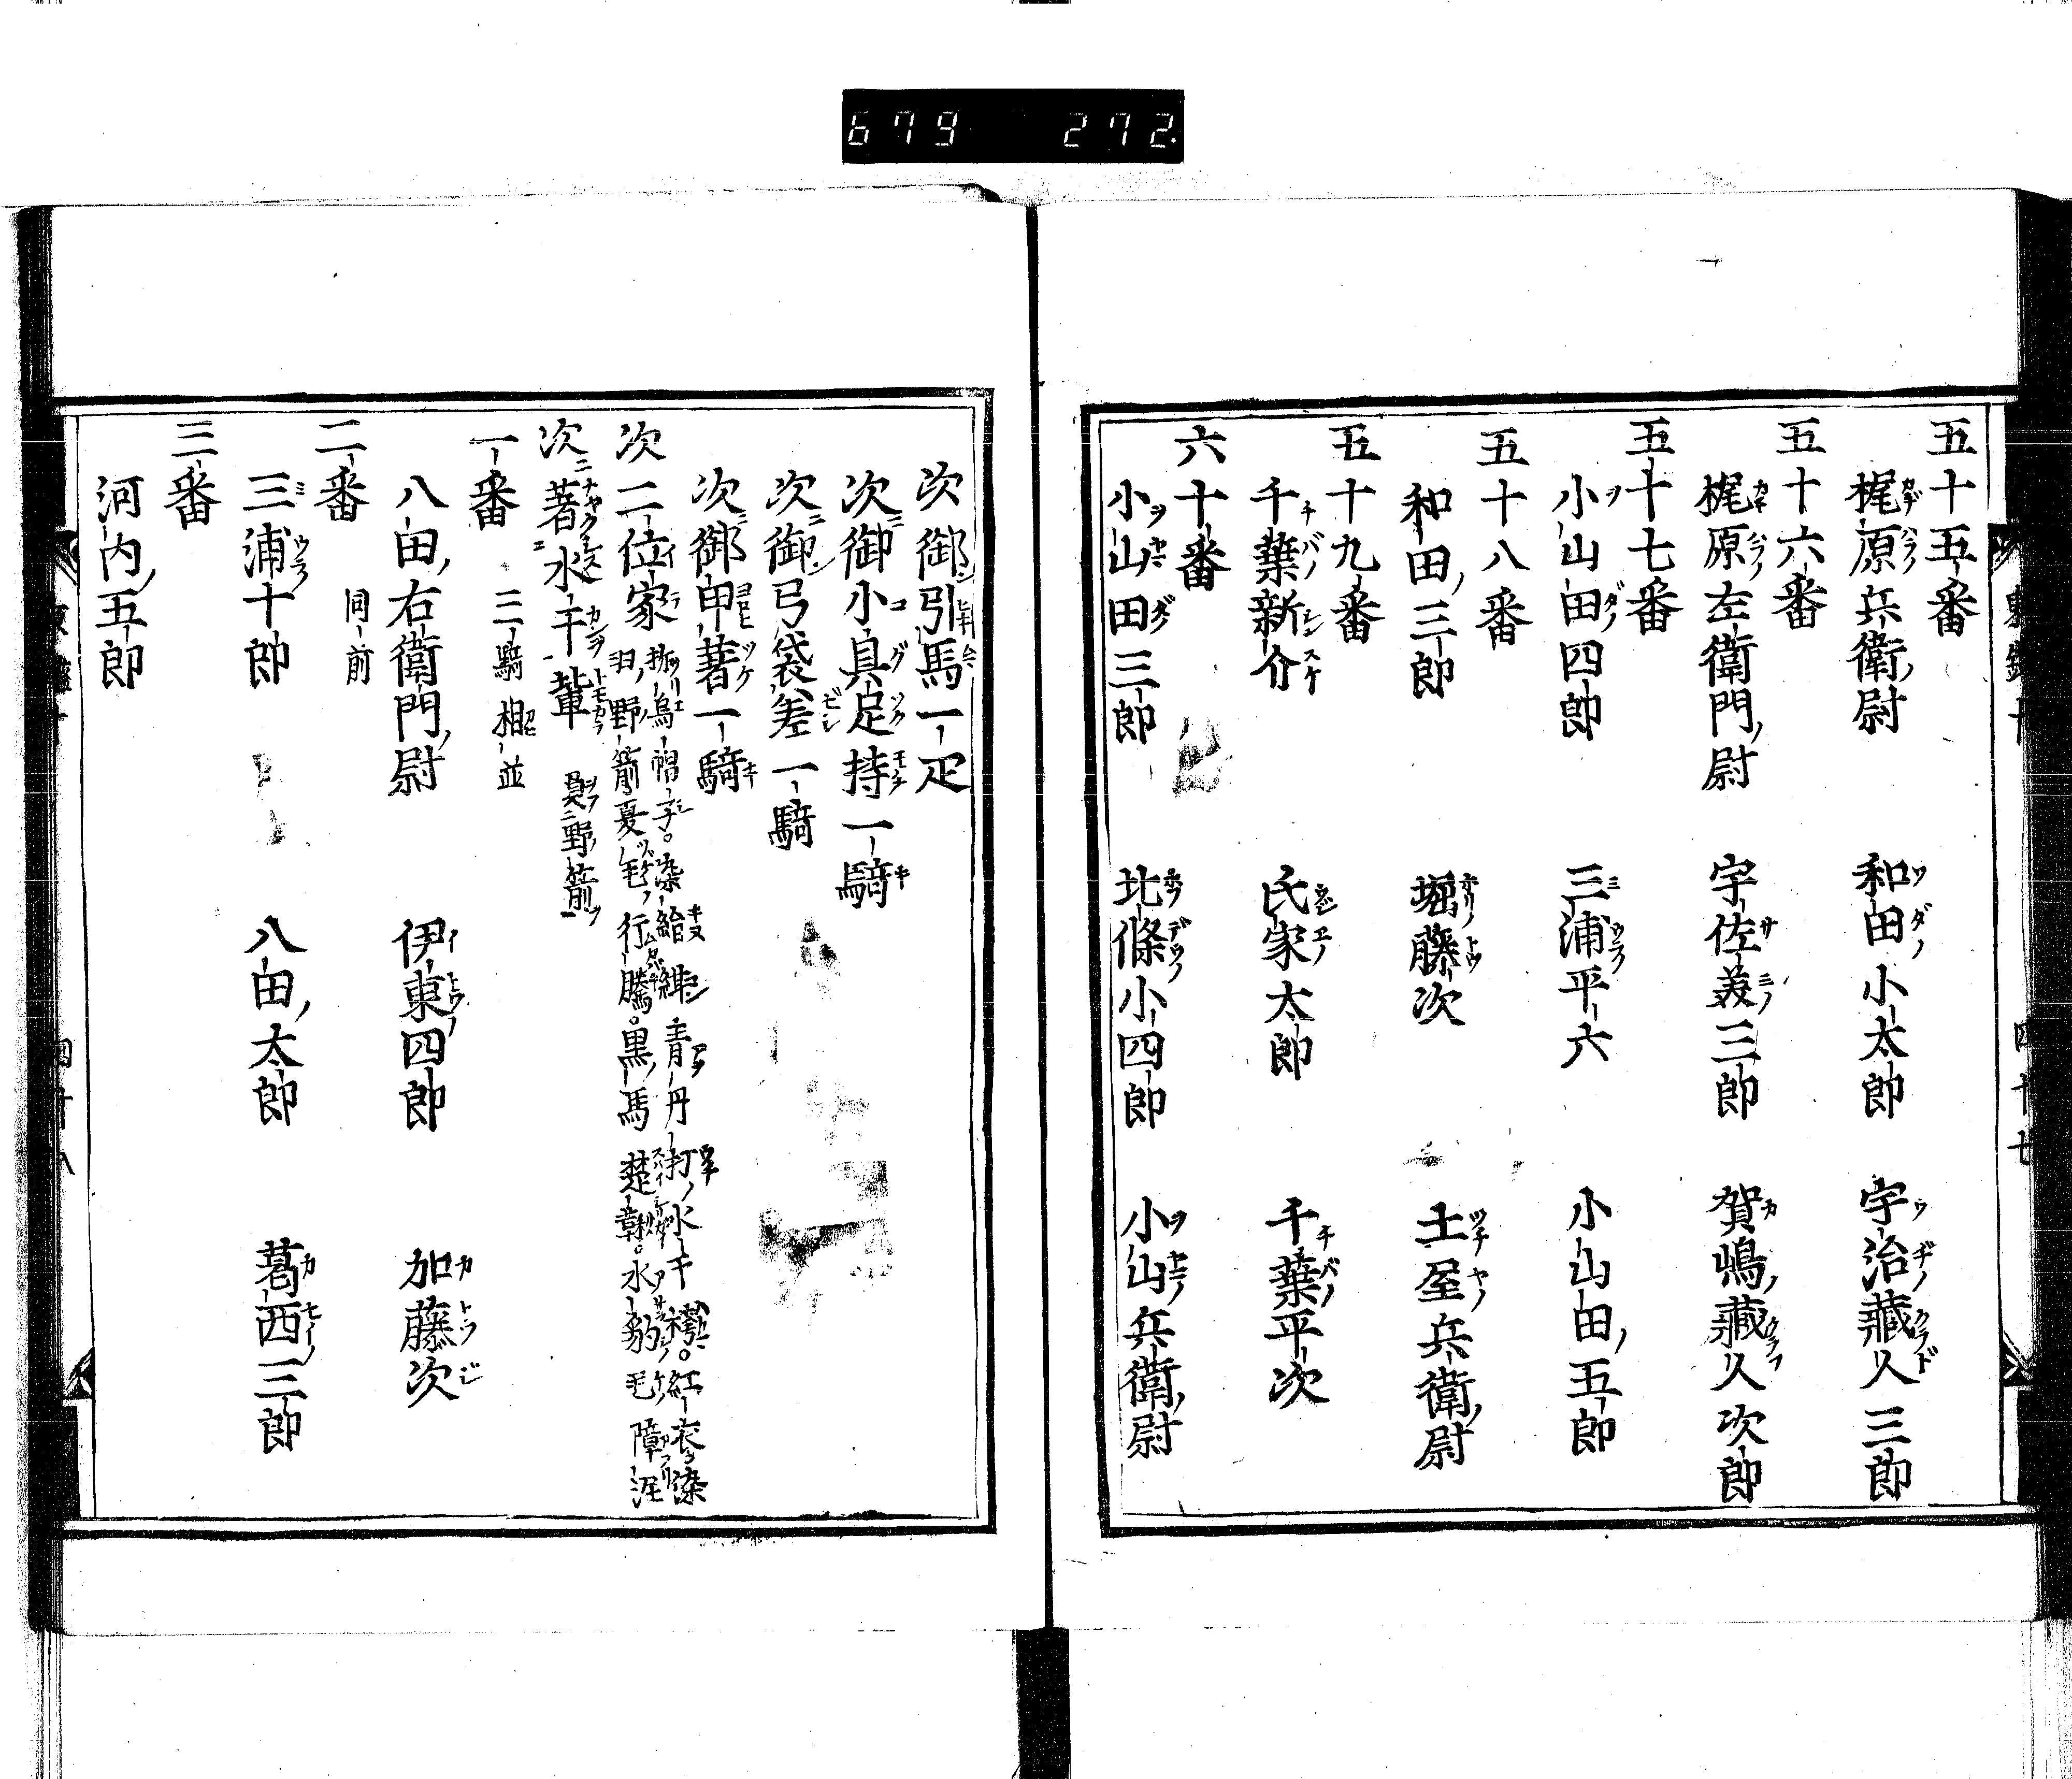 679 272
五十五番
梶原兵衛尉 和田小太郎 宇治藏人三郎
五十六番
梶原左衛門尉 宇佐美三郎 賀嶋藏人次郎
五十七番
小山田四郎 三浦平六 小山田五郎
五十八番
和田三郎 堀藤次 土屋兵衛尉
五十九番
千葉新介 氏家太郎 千葉平次
六十番
小山田三郎 北條小四郎 小山兵衛尉
四十七
次御引馬一疋
次御小具足持一騎
次御弓袋差一騎
次御甲著一騎
次二位家
折烏帽子。染 青丹打水干袴。紅衣染
羽野箭夏毛行騰。黒馬楚鞦。水豹毛障泥
次著水干輩 具野箭
一番 三騎相並
八田右衛門尉 伊東四郎 加藤次
二番 同前
三浦十郎 八田太郎 葛西三郎
三番
河内五郎
四十八